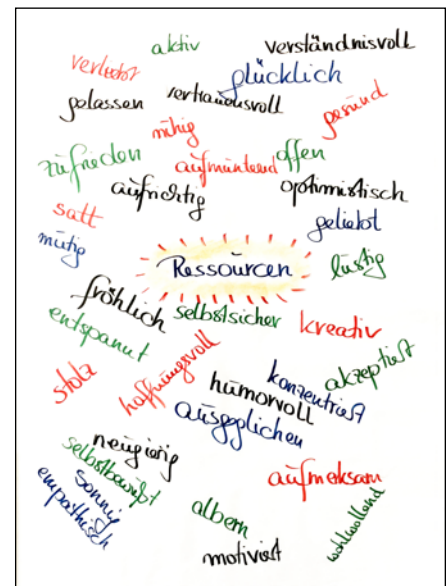 aktiv
verständnisvoll
verliebt
glücklich
gelassen
vertrauensvoll
gesund
ruhig
zufrieden
aufmunternd
offen
aufrichtig
optimistisch
satt
geliebt
mutig
Ressourcen
lustig
fröhlich
selbstsicher
kreativ
entspannt
hoffnungsvoll
akzeptiert
stolz
humorvoll
konzentriert
ausgeglichen
neugierig
selbstbewußt
aufmerksam
sonnig
empathisch
albern
wohlwollend
motiviert